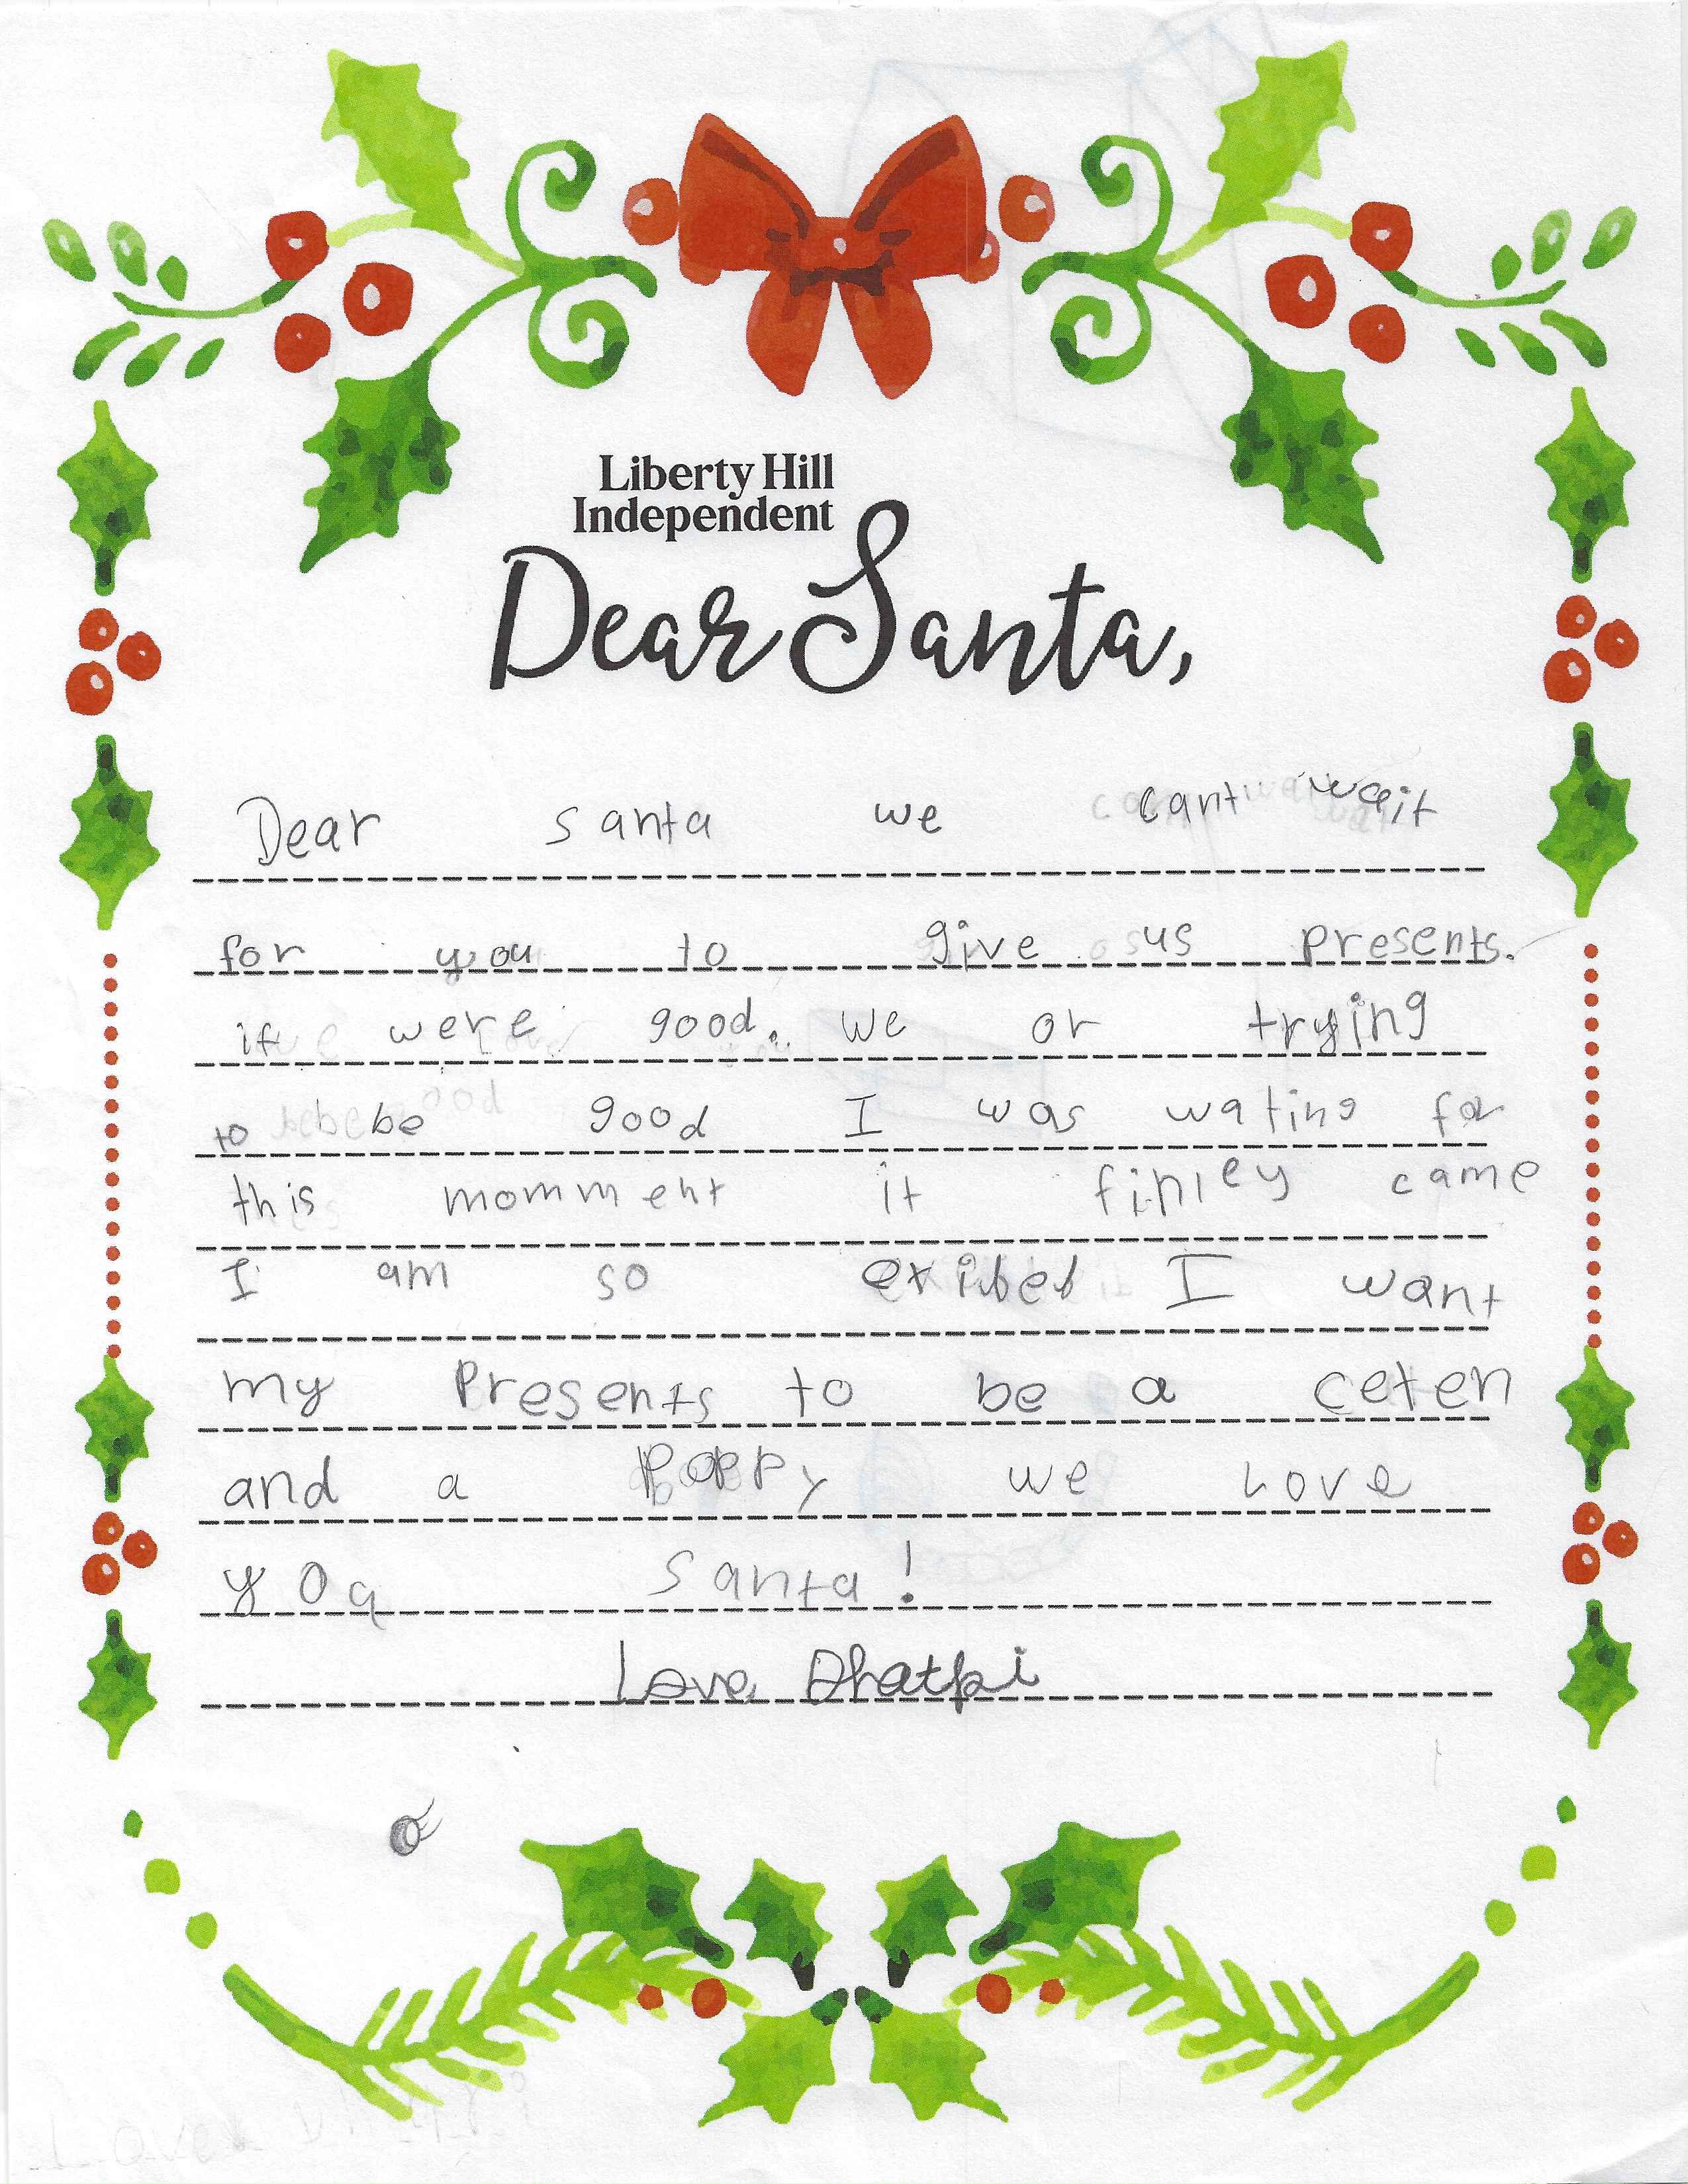 Liberty Hill
Independent
Dear Santa,
Dear santa we cant wait
for you to give us presents.
if were good. we or trying
to be good I was wating for
this momment it finley came
I am so exibeb I want
my Presents to be a ceten
and a Poppy we Love
you santa!
Love, Dhatki